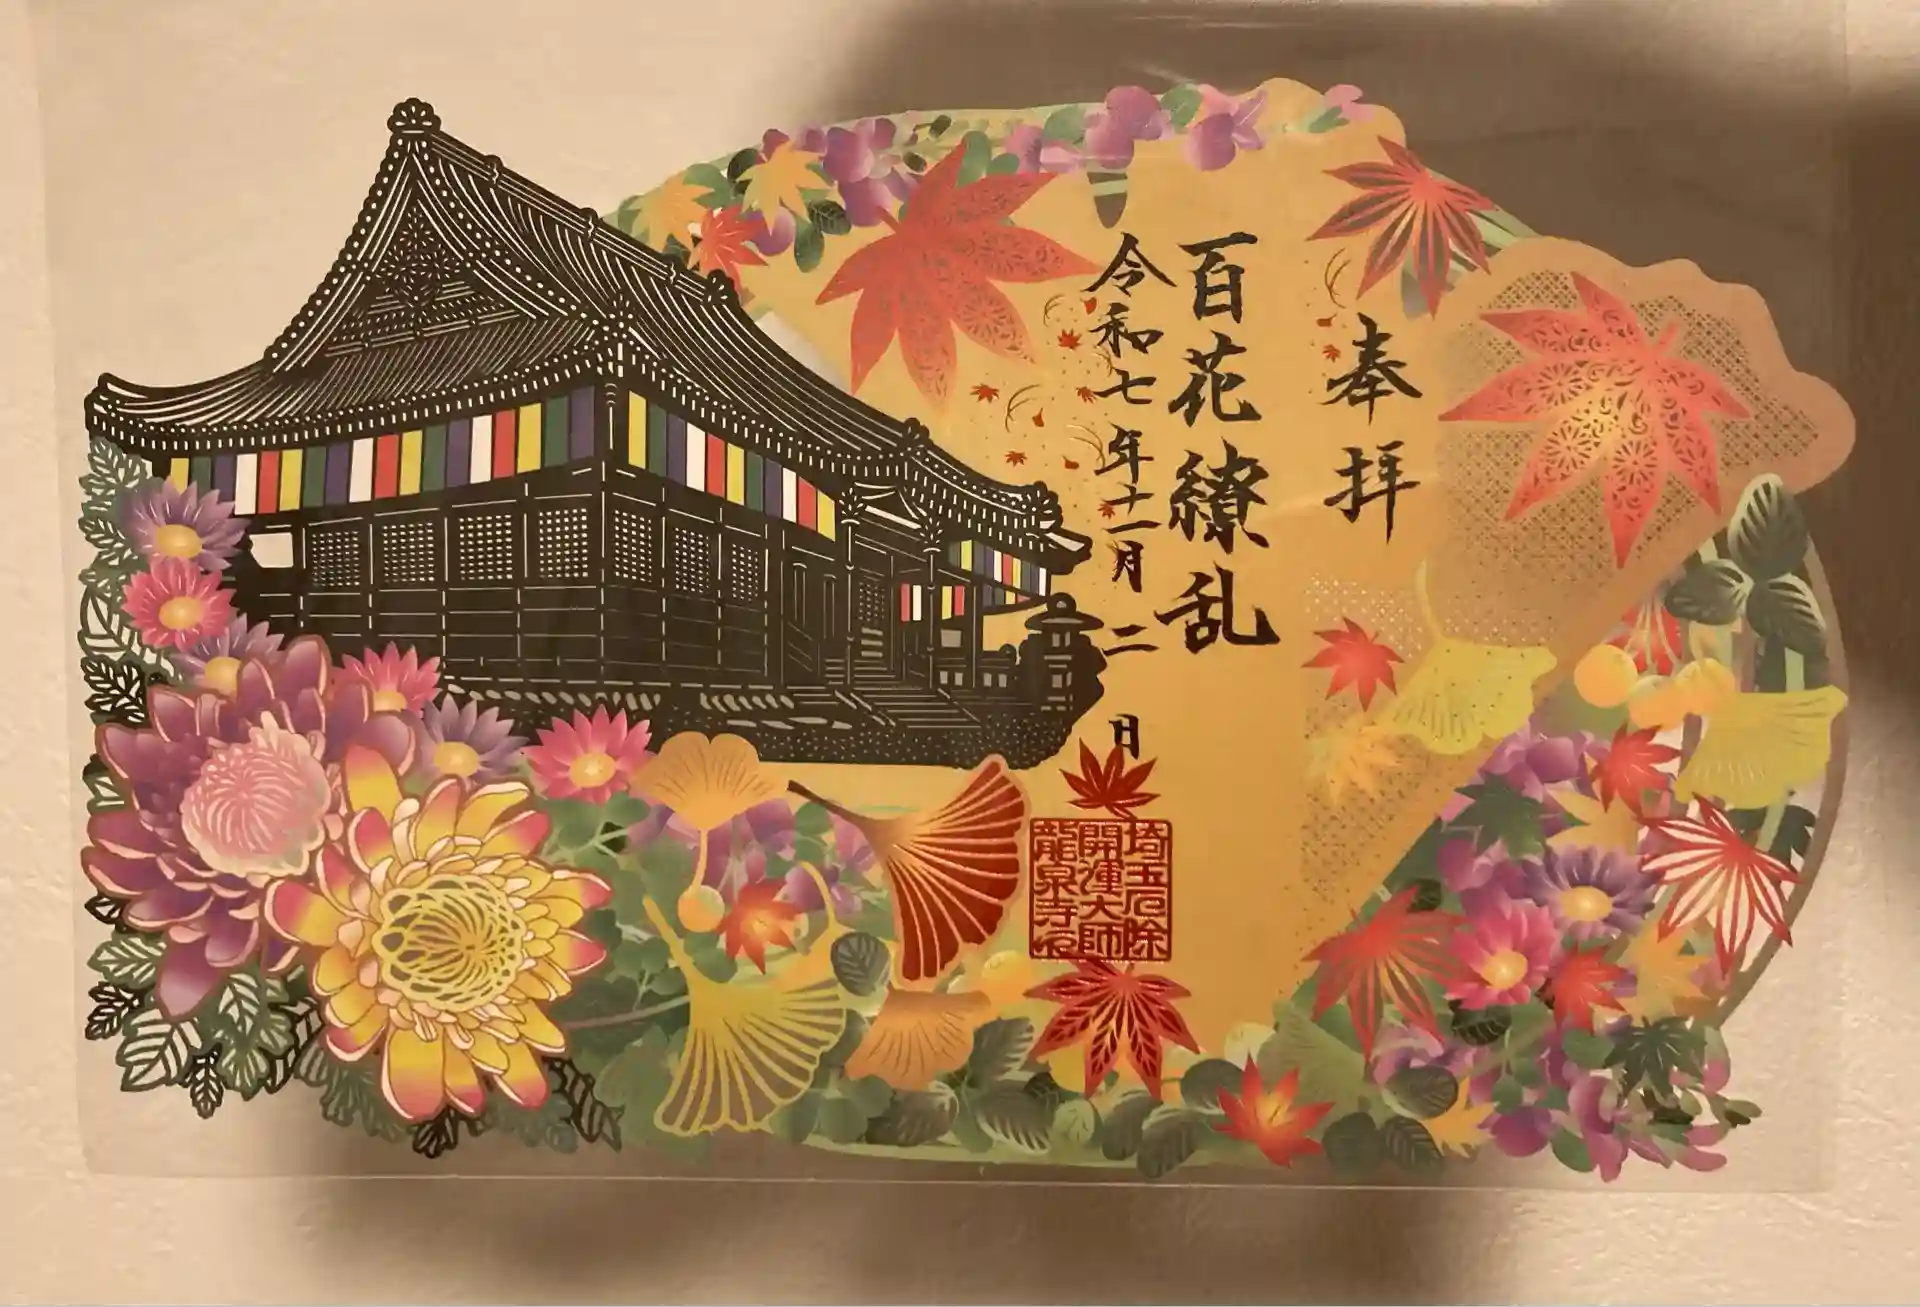 奉拝
百花繚乱
令和七年十一月二日
埼玉厄除
開運大師
龍泉寺印